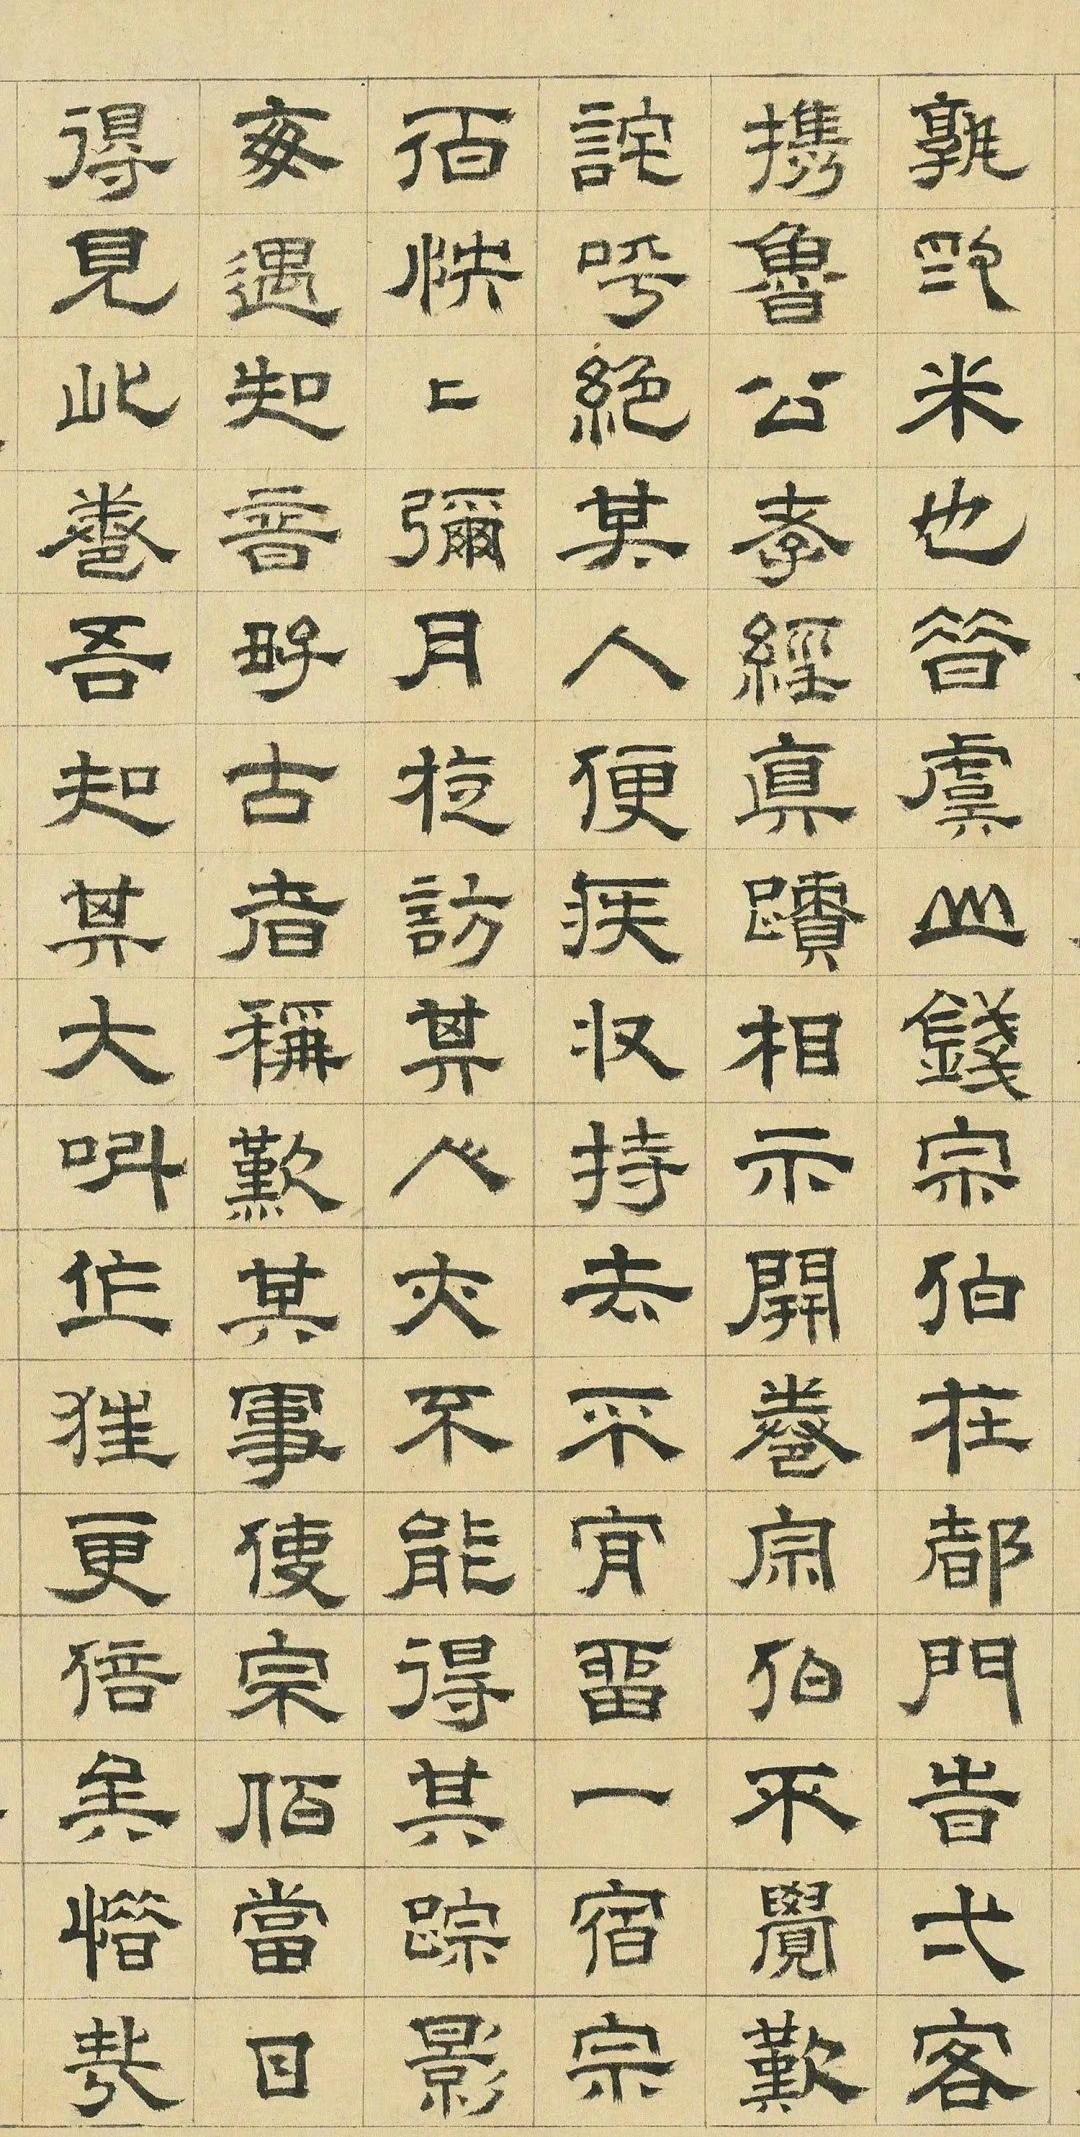 孰米也昔虞山錢宗伯在都門旹弍客
携魯公孝經真蹟相示開卷宗伯不覺歎
詫呼絕其人便疾收持去不肎留一宿宗
佰怏〻彌月從訪其人亦不能得其踪影
每遇知音好古者稱歎其事使宗佰當日
得見此卷吾知其大叫作狂更倍矣惜哉